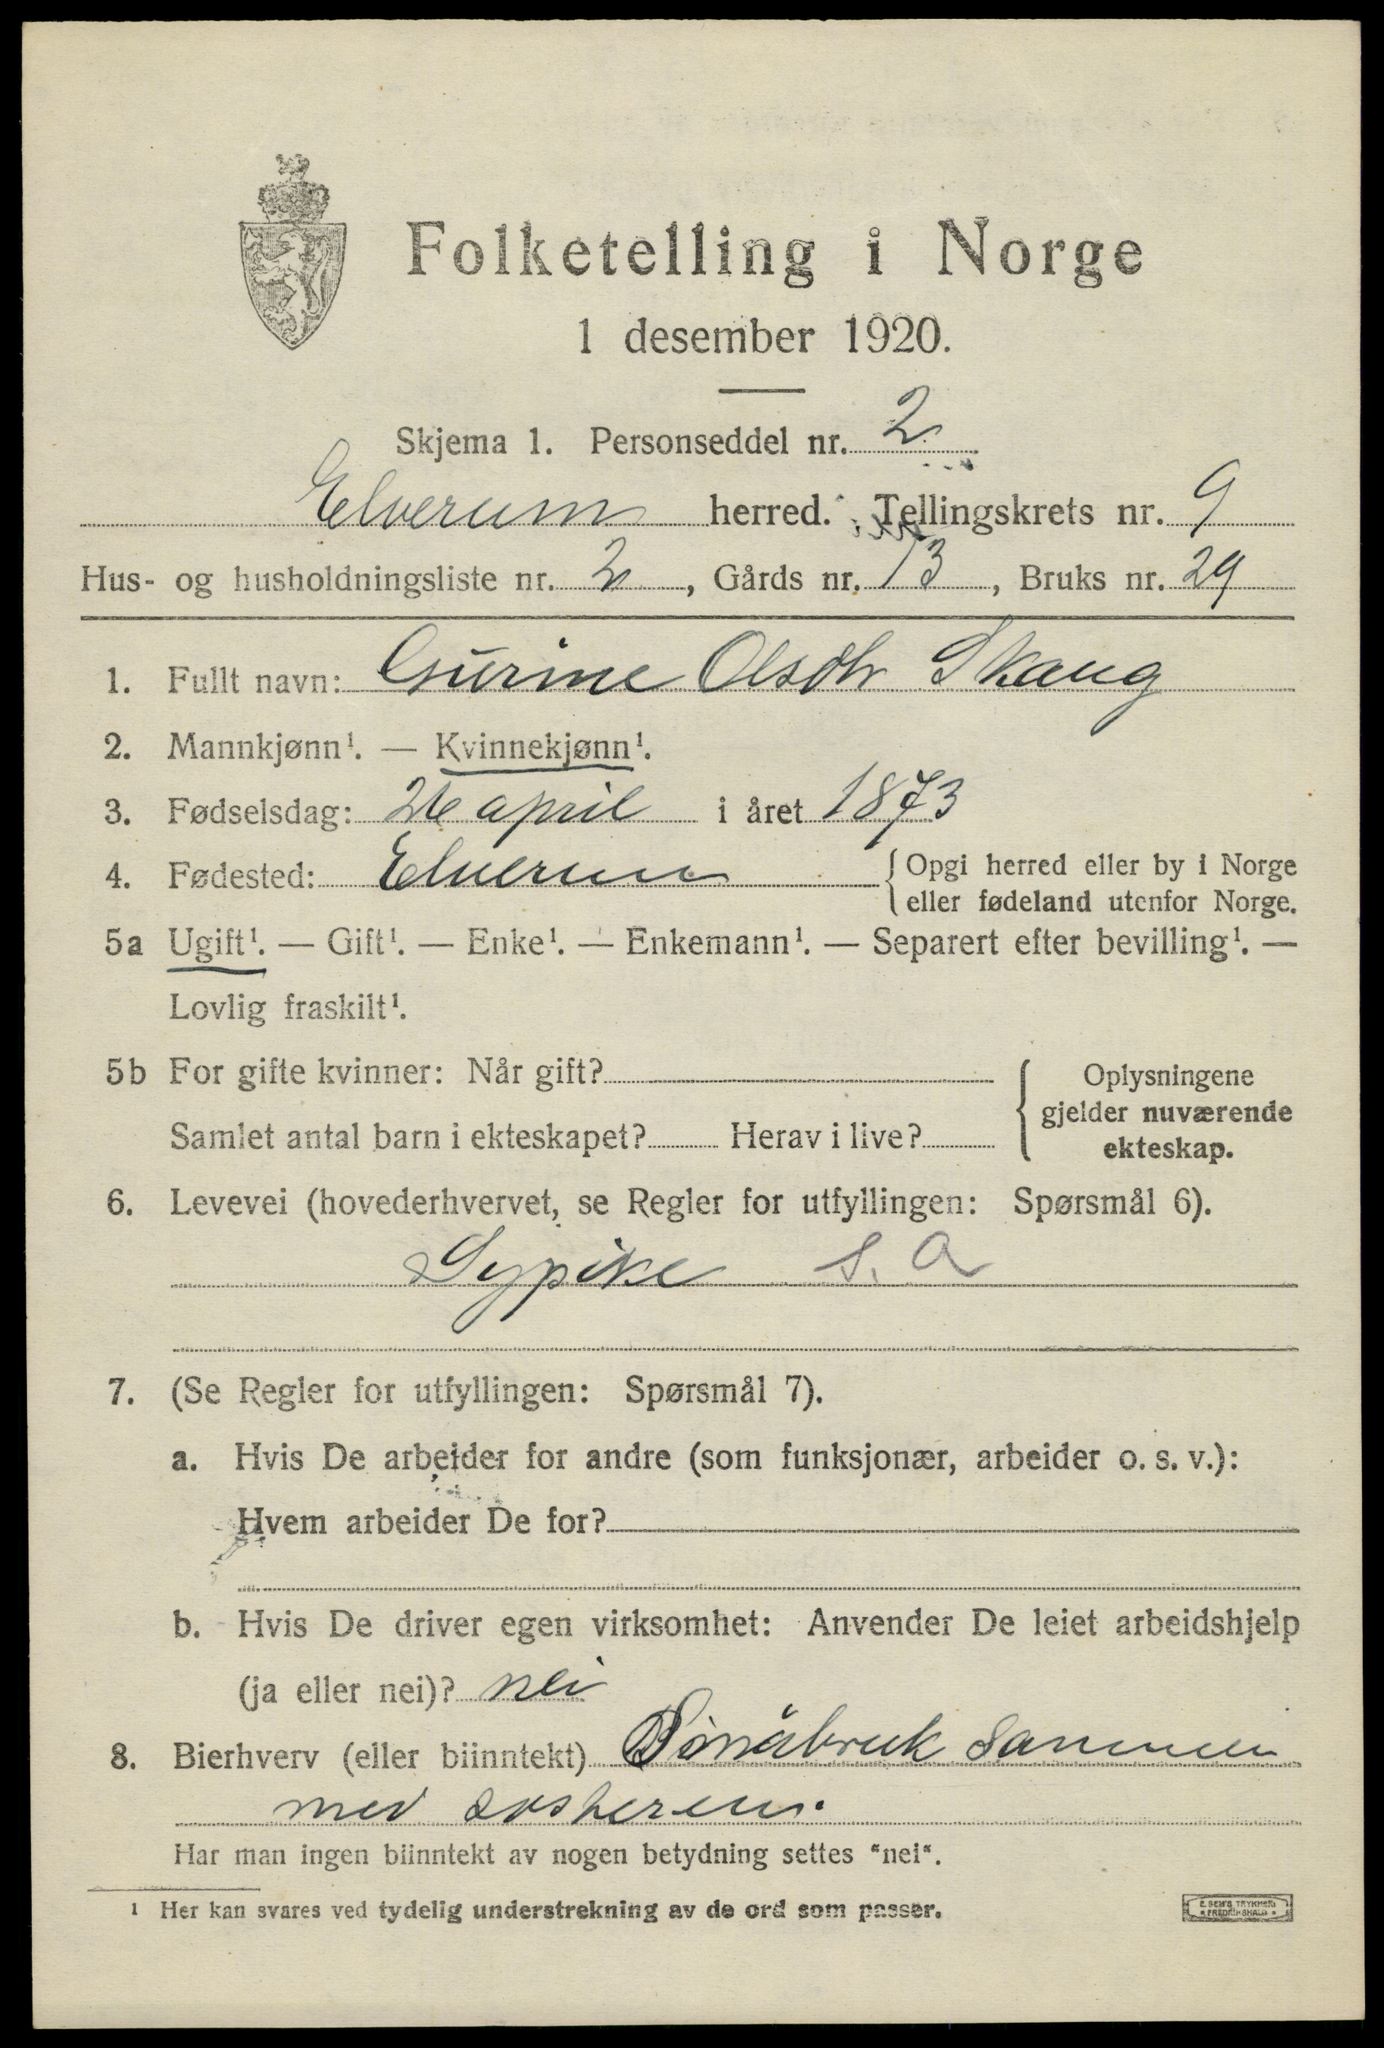 Folketelling i Norge
1 desember 1920.
Skjema 1. Personseddel nr. 2
Elverum herred. Tellingskrets nr. 9
Hus- og husholdningsliste nr. 2, Gårds nr. 13, Bruks nr. 29
1. Fullt navn: Gurine Olsdtr Skaug
2. Mannkjønn¹. — Kvinnekjønn¹.
3. Fødselsdag: 26 april i året 1873
4. Fødested: Elverum { Opgi herred eller by i Norge
eller fødeland utenfor Norge.
5a Ugift¹. — Gift¹. — Enke¹. — Enkemann¹. — Separert efter bevilling¹. —
Lovlig fraskilt¹.
5b For gifte kvinner: Når gift? { Oplysningene
gjelder nuværende
Samlet antal barn i ekteskapet? Herav i live?
ekteskap.
6. Levevei (hovederhvervet, se Regler for utfyllingen: Spørsmål 6).
Sypike S. a
7. (Se Regler for utfyllingen: Spørsmål 7).
a. Hvis De arbeider for andre (som funksjonær, arbeider o. s. v.):
Hvem arbeider De for?
b. Hvis De driver egen virksomhet: Anvender De leiet arbeidshjelp
(ja eller nei)? nei
8. Bierhverv (eller biinntekt) Småbruk sammen
med søsteren.
Har man ingen biinntekt av nogen betydning settes "nei".
1 Her kan svares ved tydelig understrekning av de ord som passer.
E. SEM'S TRYKKERI
* FREDRIKSHALD *